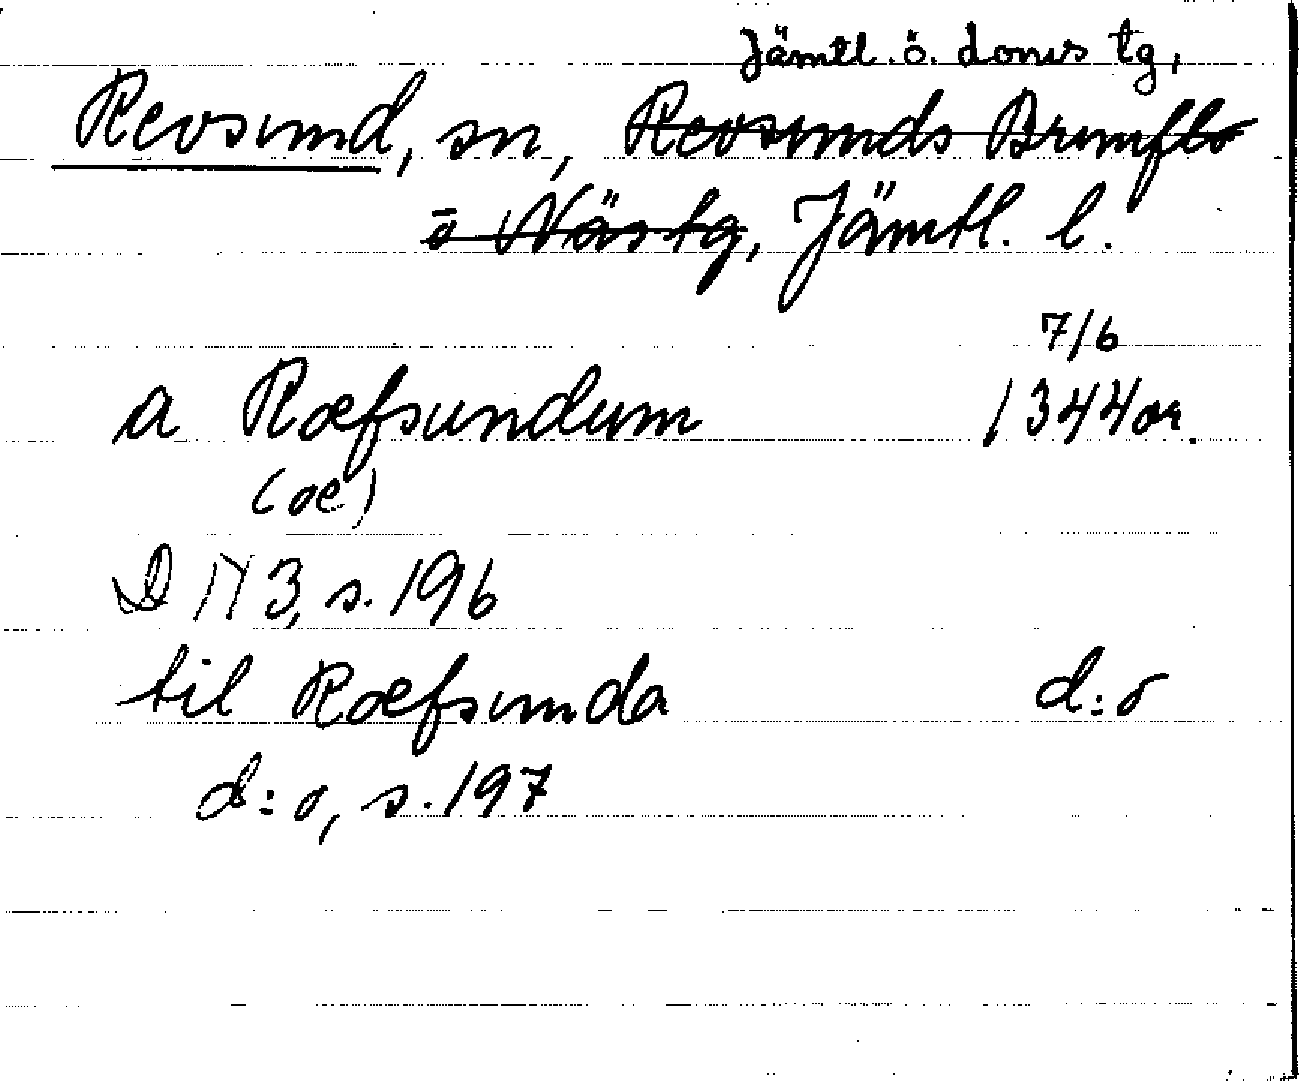 Jämtl. ö. doms tg,
Revsund, sn, Revsunds Brunflo
o Näs tg, Jämtl. l.
7/6
a Ræfsundum 1344 or.
(æ)
DN 3, s. 196
til Ræfsunda d:o
d:o, s. 197